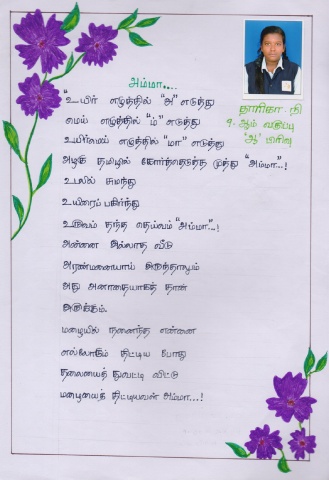 அம்மா....
"உயிர் எழுத்தில் "அ" எடுத்து
மெய் எழுத்தில் "ம்" எடுத்து
உயிர்மெய் எழுத்தில் "மா" எடுத்து
அழகு தமிழில் கோர்த்தெடுத்த முத்து "அம்மா"...!
உடலில் சுமந்து
உயிரைப் பகிர்ந்து
உருவம் தந்த தெய்வம் "அம்மா"...!
அன்னை இல்லாத வீடு
அரண்மனையாய் இருந்தாலும்
அது அனாதையாகத் தான்
இருக்கும்.
மழையில் நனைந்த என்னை
எல்லோரும் திட்டிய போது
தலையைத் துவட்டி விட்டு
மழையைத் திட்டியவள் அம்மா...!
தாரிகா . நி
9. ஆம் வகுப்பு
'ஆ' பிரிவு